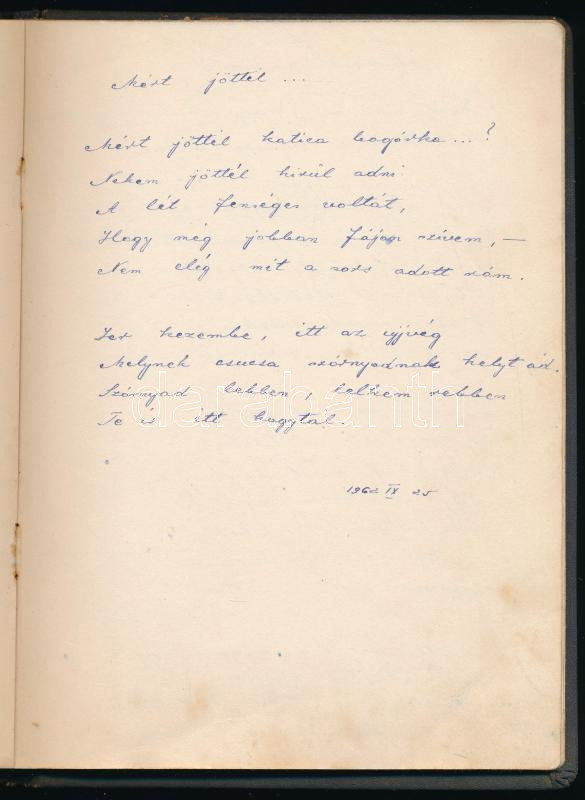 Mért jöttél ...
Mért jöttél katica bogárka ... ?
Nekem jöttél hirül adni
A lét fenséges voltát,
Hogy még jobban fájon szivem, —
Nem elég mit a sors adott rám.
Jer kezembe, itt az ujjvég
Melynek csucsa szárnyadnak helyt ád.
Szárnyad lebben, lelkem rebben
Te is itt hagytál.
1962 IX 25
darabanth